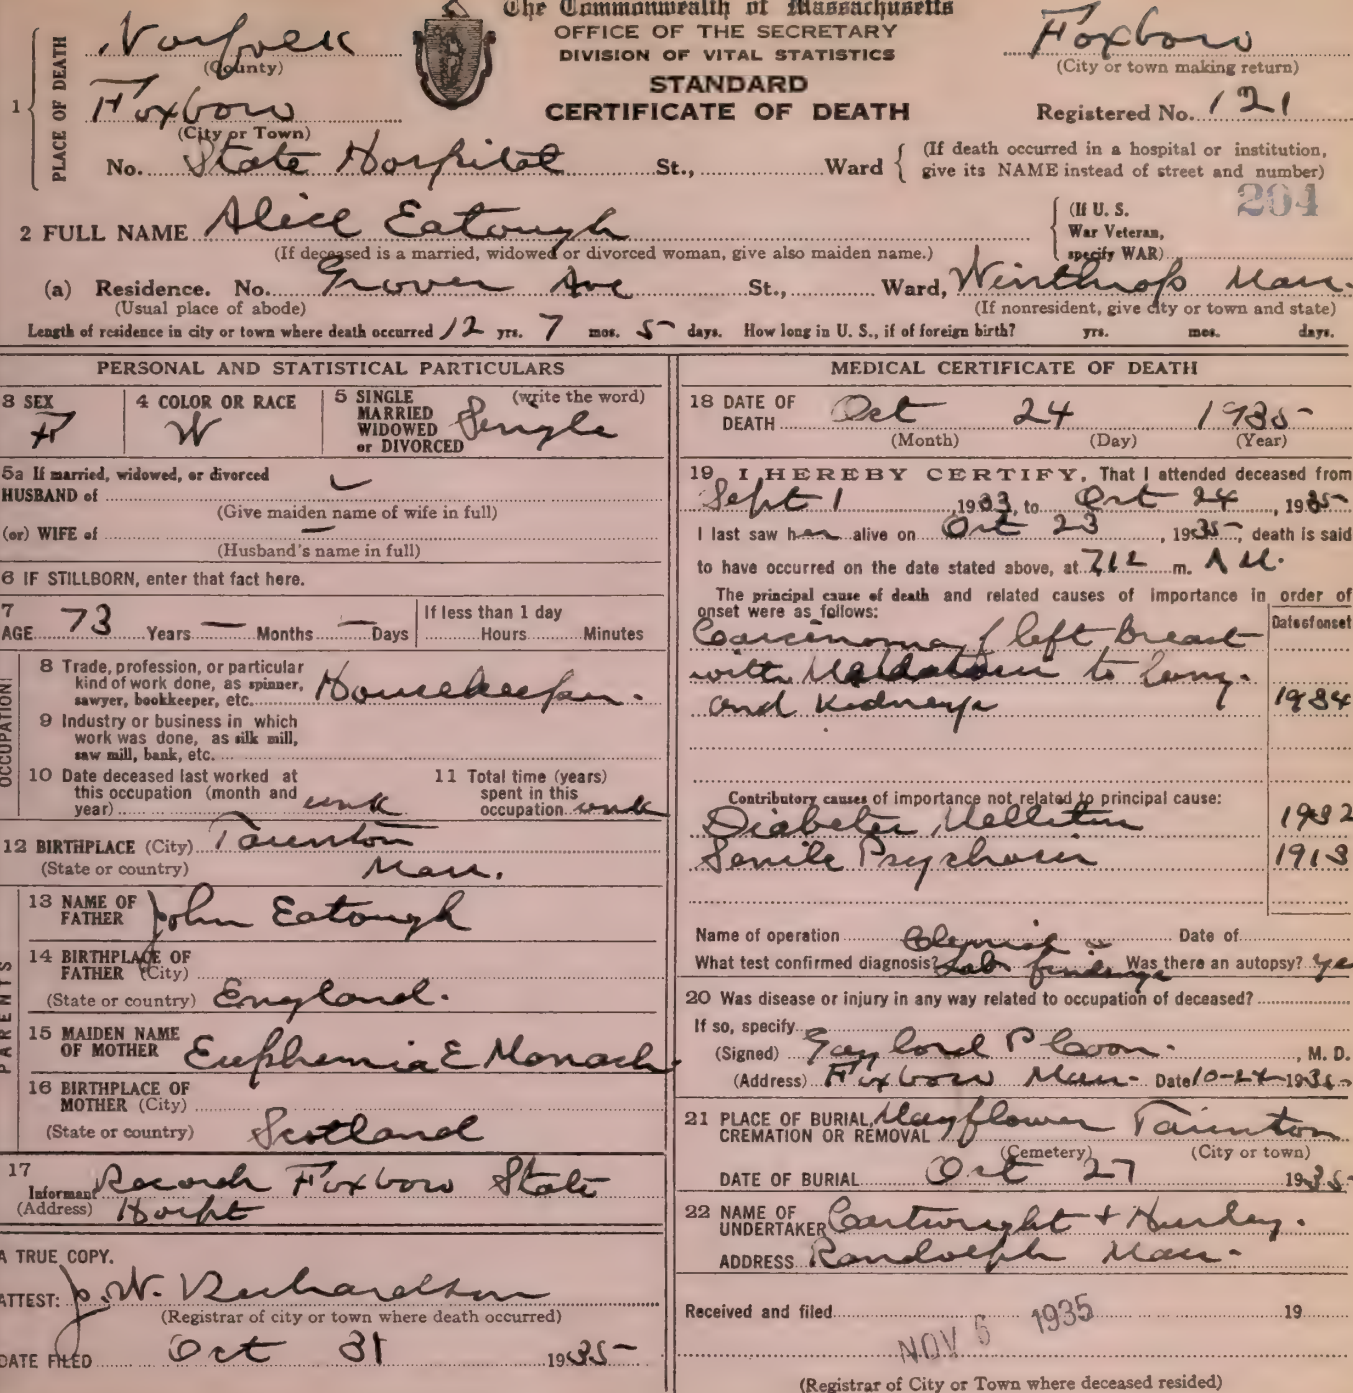 The Commonwealth of Massachusetts
OFFICE OF THE SECRETARY
DIVISION OF VITAL STATISTICS
STANDARD
CERTIFICATE OF DEATH
1 PLACE OF DEATH
Norfolk
(County)
Foxboro
(City or Town)
No. State Hospital St., Ward
Foxboro
(City or town making return)
Registered No. 121
(If death occurred in a hospital or institution,
give its NAME instead of street and number)
204
2 FULL NAME Alice Eatough
(If deceased is a married, widowed or divorced woman, give also maiden name.)
(If U. S.
War Veteran,
specify WAR)
(a) Residence. No. Grover Ave St., Ward, Winthrop Mass.
(Usual place of abode) (If nonresident, give city or town and state)
Length of residence in city or town where death occurred 12 yrs. 7 mos. 5 days. How long in U. S., if of foreign birth? yrs. mos. days.
PERSONAL AND STATISTICAL PARTICULARS
3 SEX F
4 COLOR OR RACE W
5 SINGLE MARRIED WIDOWED or DIVORCED (write the word) Single
5a If married, widowed, or divorced
HUSBAND of
(Give maiden name of wife in full)
(or) WIFE of —
(Husband's name in full)
6 IF STILLBORN, enter that fact here.
7 AGE 73 Years — Months — Days
If less than 1 day
Hours Minutes
OCCUPATION
8 Trade, profession, or particular
kind of work done, as spinner,
sawyer, bookkeeper, etc. Housekeeper.
9 Industry or business in which
work was done, as silk mill,
saw mill, bank, etc.
10 Date deceased last worked at
this occupation (month and
year) unk
11 Total time (years)
spent in this
occupation unk
12 BIRTHPLACE (City) Taunton
(State or country) Mass.
PARENTS
13 NAME OF FATHER John Eatough
14 BIRTHPLACE OF
FATHER (City)
(State or country) England.
15 MAIDEN NAME
OF MOTHER Euphemia E Monach
16 BIRTHPLACE OF
MOTHER (City)
(State or country) Scotland
17 Informant Records Foxboro State
(Address) Hospt
A TRUE COPY.
ATTEST: J. W. Richardson
(Registrar of city or town where death occurred)
DATE FILED Oct 31 1935
MEDICAL CERTIFICATE OF DEATH
18 DATE OF DEATH Oct 24 1935
(Month) (Day) (Year)
19 I HEREBY CERTIFY, That I attended deceased from
Sept 1, 1933, to Oct 24, 1935
I last saw her alive on Oct 23, 1935, death is said
to have occurred on the date stated above, at 7,12 m. A M.
The principal cause of death and related causes of importance in order of
onset were as follows: Date of onset
Carcinoma of left Breast
with to Lung.
and Kidneys 1934
Contributory causes of importance not related to principal cause:
Diabetes Mellitus 1932
Senile Psychosis 1913
Name of operation Date of
What test confirmed diagnosis? Clinical Lab findings Was there an autopsy? yes
20 Was disease or injury in any way related to occupation of deceased?
If so, specify
(Signed) Gaylord P Coon. , M. D.
(Address) Foxboro Mass. Date 10-24-1935
21 PLACE OF BURIAL,
CREMATION OR REMOVAL Mayflower Taunton
(Cemetery) (City or town)
DATE OF BURIAL Oct 27 1935
22 NAME OF
UNDERTAKER Cartwright + Hurley.
ADDRESS Randolph Mass.
Received and filed 19
NOV 6 1935
(Registrar of City or Town where deceased resided)